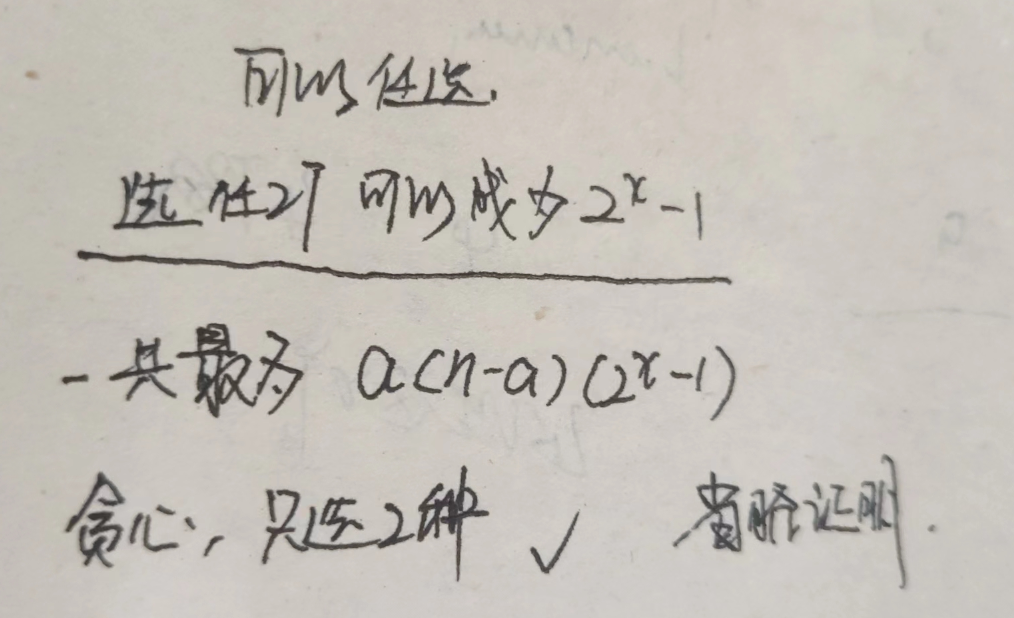 可以任选.
选任2个 可以成为 2^x-1
一共最为 a(n-a)(2^x-1)
贪心, 只选2种 ✓ 省略证明.